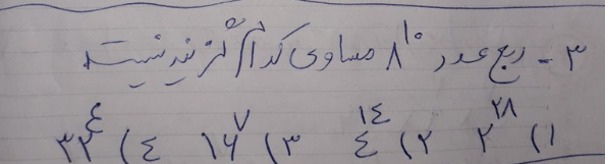 ۳ - ربع عدد ۸^۱۰ مساوی کدام گزینه نیست
۱) ۲^۲۸ ۲) ۴^۱۴ ۳) ۱۶^۷ ۴) ۳۲^۴